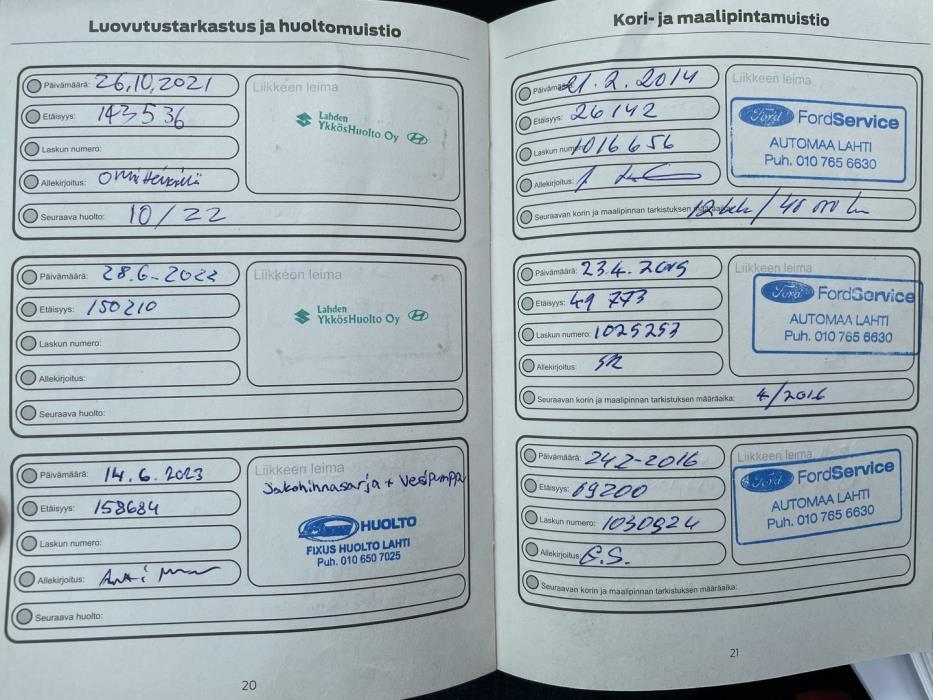 Luovutustarkastus ja huoltomuistio
Päivämäärä: 26.10.2021
Etäisyys: 143536
Laskun numero:
Allekirjoitus:
Seuraava huolto: 10/22
Liikkeen leima
Lahden
YkkösHuolto Oy
Päivämäärä: 28.6-2022
Etäisyys: 150210
Laskun numero:
Allekirjoitus:
Seuraava huolto:
Liikkeen leima
Lahden
YkkösHuolto Oy
Päivämäärä: 14.6.2023
Etäisyys: 158684
Laskun numero:
Allekirjoitus:
Seuraava huolto:
Liikkeen leima
Jakohihnasarja + Vesipumppu
HUOLTO
FIXUS HUOLTO LAHTI
Puh. 010 650 7025
20
Kori- ja maalipintamuistio
Päivämäärä: 21.2.2014
Etäisyys: 26142
Laskun numero: 1016656
Allekirjoitus:
Seuraavan korin ja maalipinnan tarkistuksen
Liikkeen leima
Ford FordService
AUTOMAA LAHTI
Puh. 010 765 6630
Päivämäärä: 23.4.2015
Etäisyys: 49 773
Laskun numero: 1025257
Allekirjoitus: SR
Seuraavan korin ja maalipinnan tarkistuksen määräaika: 4/2016
Liikkeen leima
Ford FordService
AUTOMAA LAHTI
Puh. 010 765 6630
Päivämäärä: 242-2016
Etäisyys: 69200
Laskun numero: 1030924
Allekirjoitus: G.S.
Seuraavan korin ja maalipinnan tarkistuksen määräaika:
Liikkeen leima
Ford FordService
AUTOMAA LAHTI
Puh. 010 765 6630
21